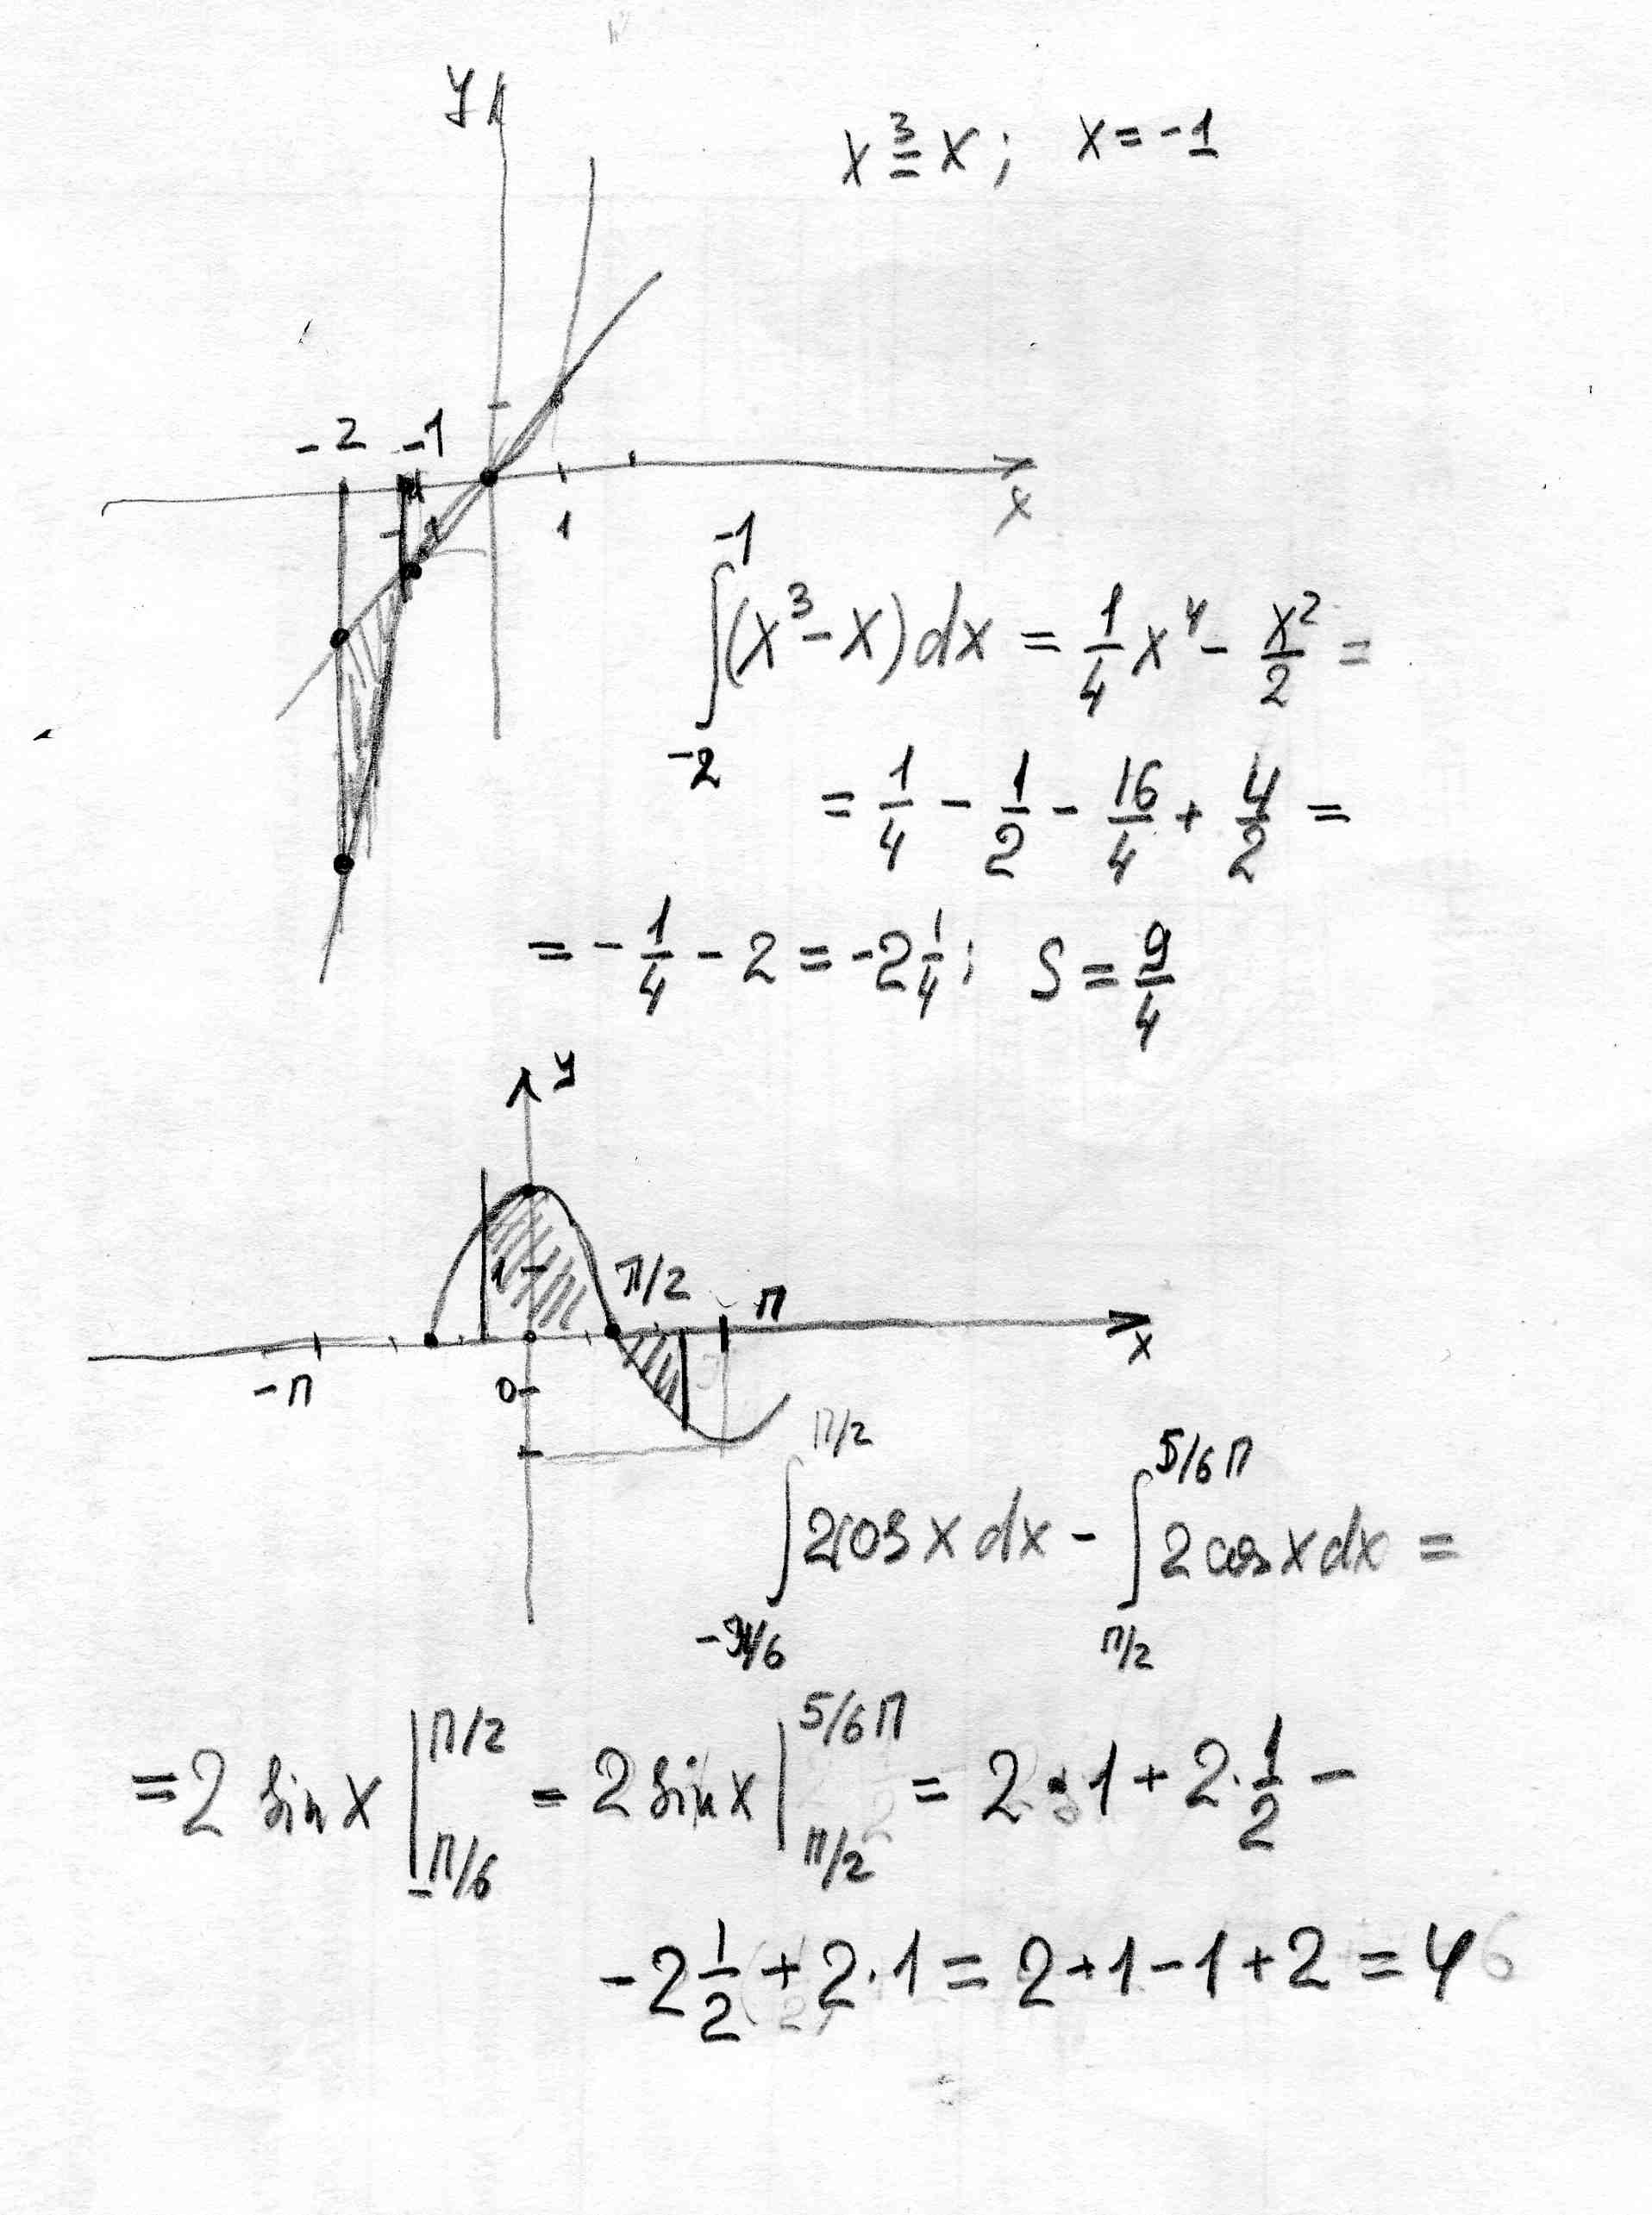 y
x³ = x; x = -1
-2 -1
1
x
∫_{-2}^{-1} (x³ - x) dx = 1/4 x⁴ - x²/2 =
= 1/4 - 1/2 - 16/4 + 4/2 =
= - 1/4 - 2 = -2 1/4; S = 9/4
y
1
π/2 π
-π 0 x
∫_{-π/6}^{π/2} 2 cos x dx - ∫_{π/2}^{5/6 π} 2 cos x dx =
= 2 sin x |_{-π/6}^{π/2} = 2 sin x |_{π/2}^{5/6 π} = 2·1 + 2·1/2 -
- 2 1/2 + 2·1 = 2+1-1+2 = 4